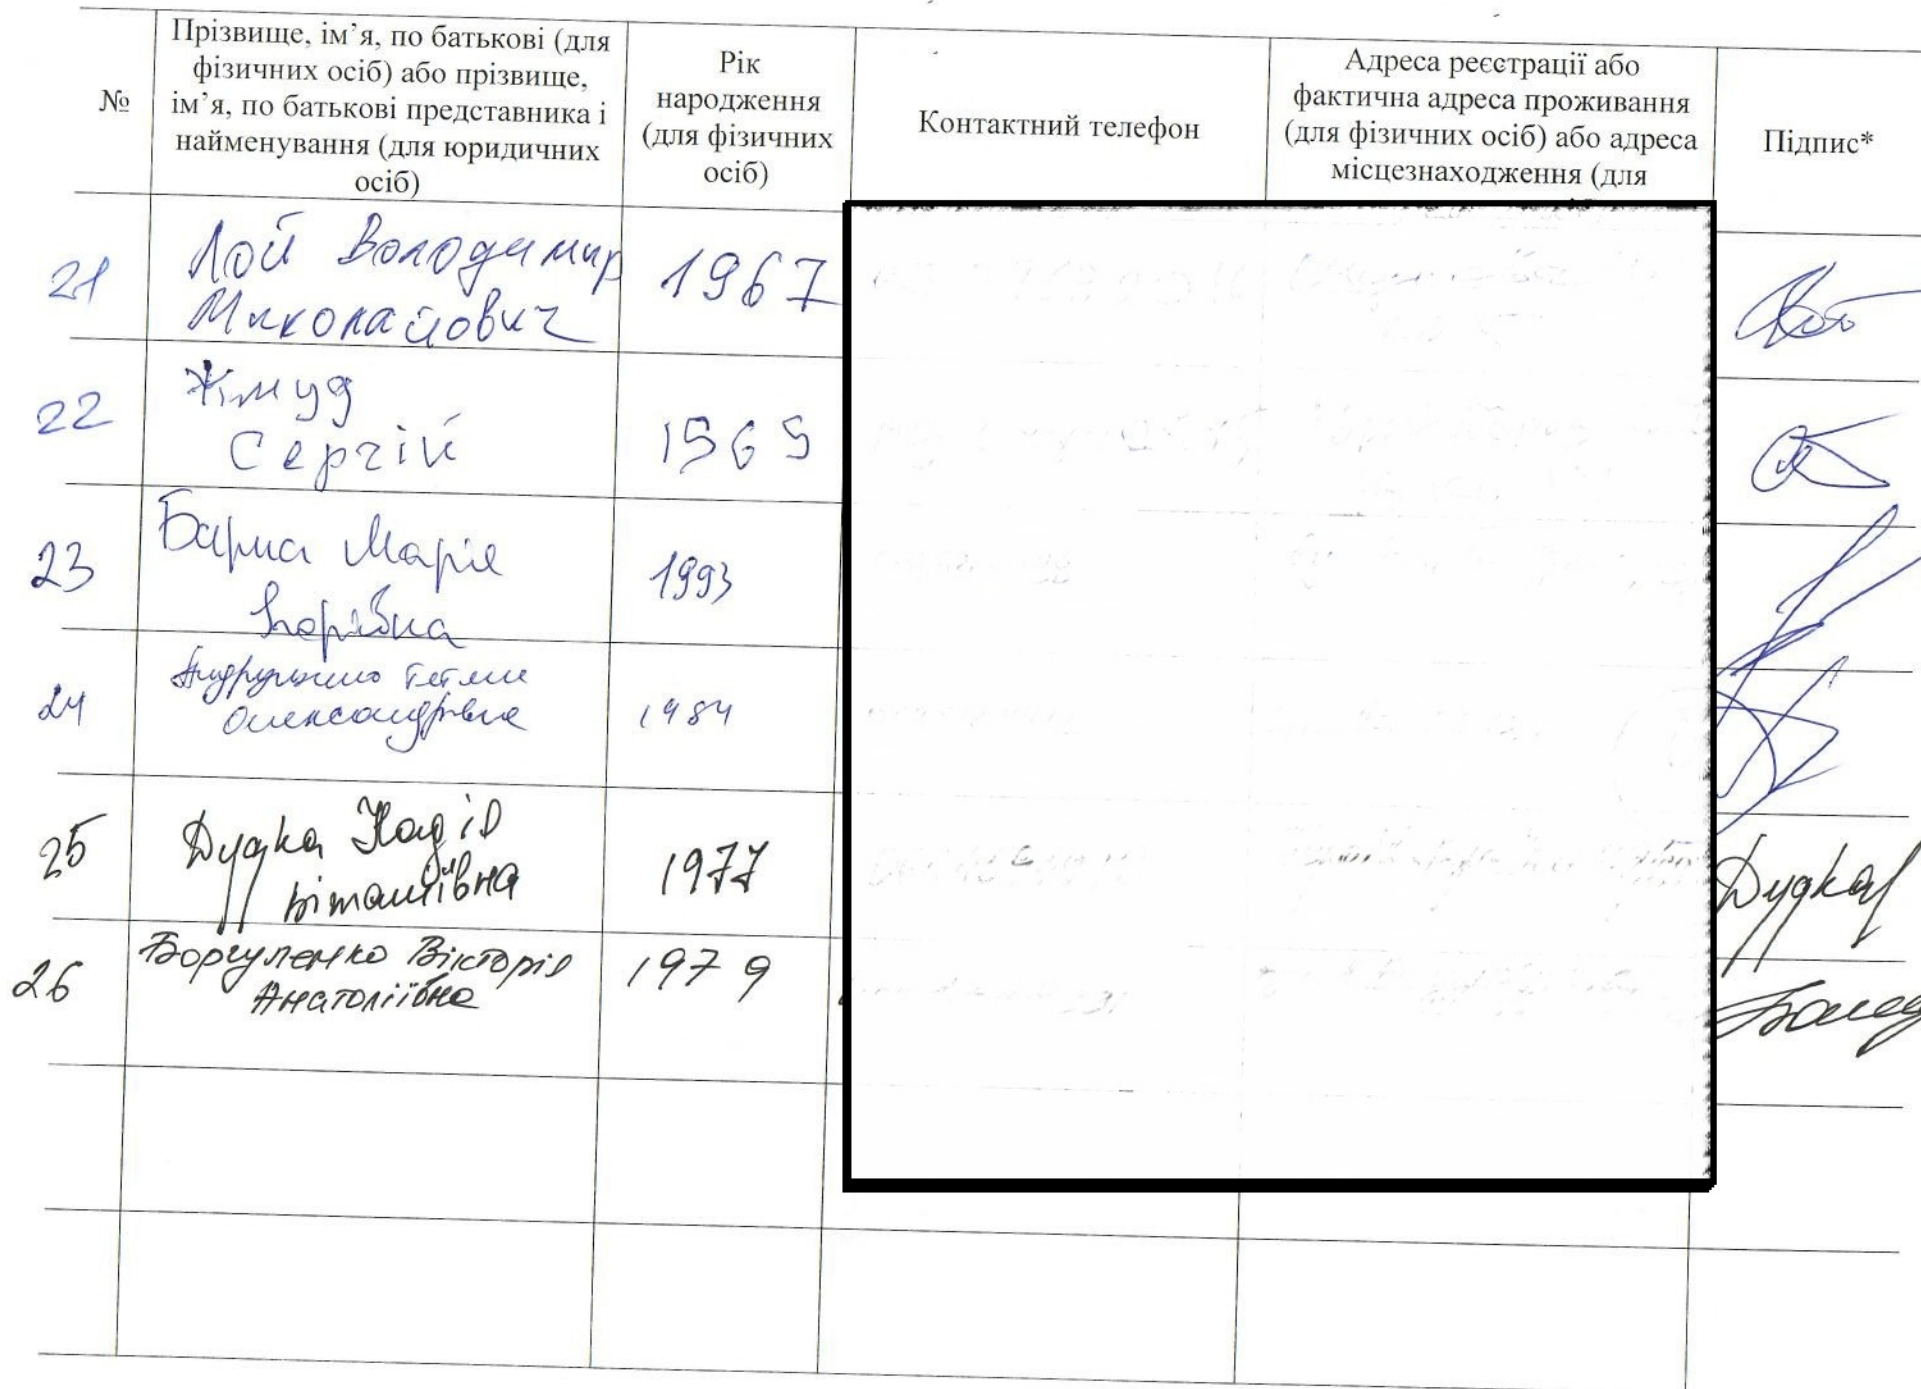 №
Прізвище, ім’я, по батькові (для
фізичних осіб) або прізвище,
ім’я, по батькові представника і
найменування (для юридичних
осіб)
Рік
народження
(для фізичних
осіб)
Контактний телефон
Адреса реєстрації або
фактична адреса проживання
(для фізичних осіб) або адреса
місцезнаходження (для
Підпис*
21
Лой Володимир
Миколайович
1967
22
Жмуд
Сергій
1969
23
Марія
Ігорівна
1993
24
Олександрівна
1984
25
Дудка Надія
Віталіївна
1977
Дудка
26
Боргуленко Вікторія
Анатоліївна
1979